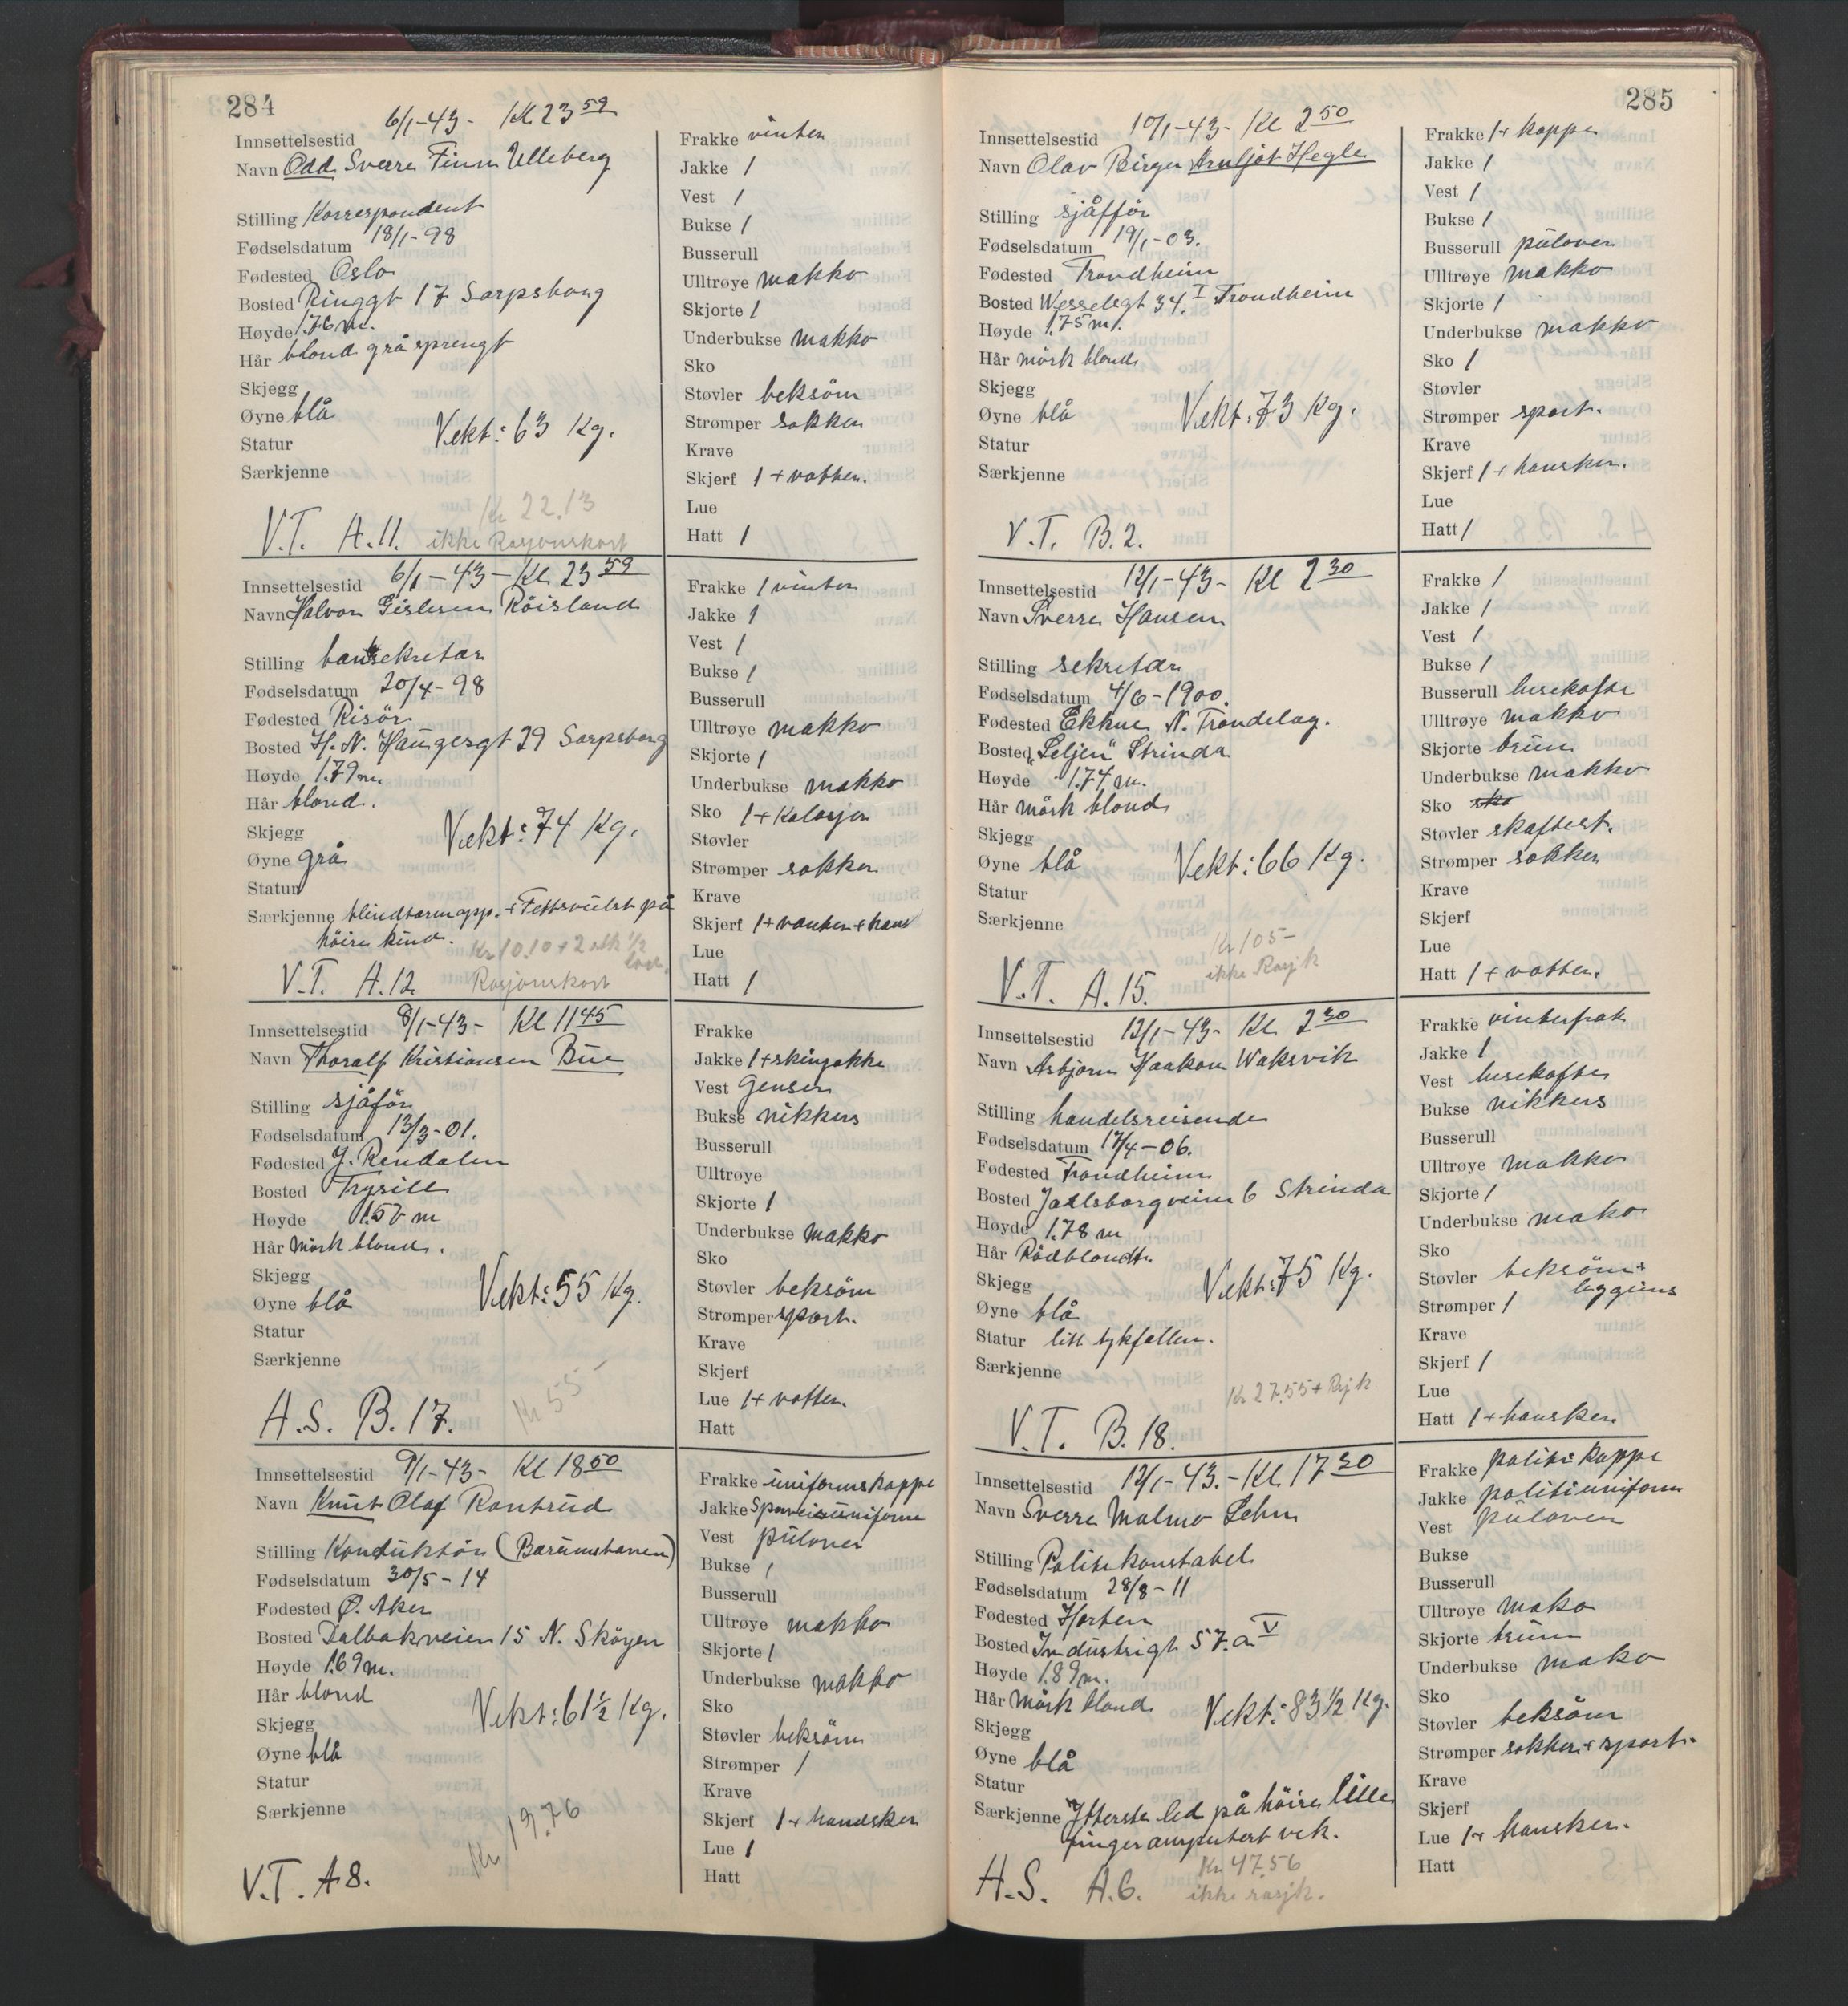 284
Innsettelsestid 6/1-43- Kl. 23 59
Navn Odd Sverre Finn Ulleberg
Stilling Korrespondent
Fødselsdatum 18/1-98
Fødested Oslo
Bosted Ringgt 17 Sarpsborg
Høyde 1.76 m.
Hår blond gråsprengt
Skjegg
Øyne blå
Vekt: 63 Kg.
Statur
Særkjenne
Kr 22.13
V.T. A.11. ikke Rasjonskort
Frakke vinter
Jakke 1
Vest 1
Bukse 1
Busserull
Ulltrøye makko
Skjorte 1
Underbukse makko
Sko
Støvler beksöm
Strømper sokker
Krave
Skjerf 1 + votter.
Lue
Hatt 1
Innsettelsestid 6/1-43- Kl. 23 59
Navn Halvor Gislesen Röisland
Stilling banksekretær
Fødselsdatum 20/4-98
Fødested Risör
Bosted H. N. Haugesgt 29 Sarpsborg
Høyde 1.79 m.
Hår blond.
Skjegg
Vekt: 74 Kg.
Øyne grå
Statur
Særkjenne blindtarmopp. + Fettsvulst på
höire kind.
Kr 10.10 + 2
V.T. A.12. Rasjonskort
Frakke 1 vinter
Jakke 1
Vest 1
Bukse 1
Busserull
Ulltrøye makko
Skjorte 1
Underbukse makko
Sko 1 + Kalosjer
Støvler
Strømper sokker
Krave
Skjerf 1 + vanter + hans
Lue
Hatt 1
Innsettelsestid 8/1-43- Kl 11 45
Navn Thoralf Kristiansen Bue
Stilling sjåför
Fødselsdatum 13/3-01.
Fødested Y. Rendalen
Bosted Trysill
Høyde m
Hår mörk blond.
Skjegg
Vekt: 55 Kg.
Øyne blå
Statur
Særkjenne
Kr 55-
A.S. B.17.
Frakke
Jakke 1 + skinjakke
Vest Genser
Bukse nikkers
Busserull
Ulltrøye
Skjorte 1
Underbukse makko
Sko
Støvler beksöm
Strømper sport.
Krave
Skjerf
Lue 1 + votter.
Hatt
Innsettelsestid 9/1-43- Kl 18 50
Navn Knut Olaf Rontrud
Stilling Konduktör (Bærumsbanen)
Fødselsdatum 30/5-14
Fødested Ø. Aker
Bosted Dalbakveien 15 N. Sköyen
Høyde 1.69 m.
Hår blond
Vekt: 61 1/2 Kg.
Skjegg
Øyne blå
Statur
Særkjenne
Kr 19.76
V.T. A8.
Frakke uniformskappe
Jakke Sporveisuniform
Vest pulover
Bukse 1
Busserull
Ulltrøye makko
Skjorte 1
Underbukse makko
Sko
Støvler beksöm
Strømper 1
Krave
Skjerf 1 + handsker
Lue 1
Hatt
285
Innsettelsestid 10/1-43- Kl 2 50
Navn Olav Birger Arnljot Hegle
Stilling sjåfför
Fødselsdatum 19/1-03.
Fødested Trondheim
Bosted Wesselsgt 34 I Trondheim
Høyde 1.75 m.
Hår mörk blond
Skjegg
Øyne blå
Vekt: 73 Kg.
Statur
Særkjenne
V.T. B.2.
Frakke 1 + kappe
Jakke 1
Vest 1
Bukse 1
Busserull pulover
Ulltrøye makko
Skjorte 1
Underbukse makko
Sko 1
Støvler
Strømper sport.
Krave
Skjerf 1 + hansker.
Lue
Hatt 1
Innsettelsestid 12/1-43- Kl 2 30
Navn Sverre Hansen
Stilling sekretær
Fødselsdatum 4/6-1900.
Fødested Ekkne N. Tröndelag.
Bosted "Seljen" Strinda
Høyde 1.74 m.
Hår mörk blond
Skjegg
Øyne blå
Vekt: 66 Kg.
Statur
Særkjenne
Kr 105-
ikke Rasjk
V.T. A.15.
Frakke 1
Jakke 1
Vest 1
Bukse 1
Busserull lusekofte
Ulltrøye makko
Skjorte brun
Underbukse makko
Sko sko
Støvler skaftest.
Strømper sokker
Krave
Skjerf
Lue
Hatt 1 + votter.
Innsettelsestid 12/1-43- Kl. 2 30
Navn Asbjørn Haakon Waksvik
Stilling handelsreisende
Fødselsdatum 17/4-06.
Fødested Trondheim
Bosted Jarlsborgveien 6 Strinda
Høyde 1.78 m
Hår Rödblondt.
Skjegg
Vekt: 75 Kg.
Øyne blå
Statur litt tykfallen.
Særkjenne
Kr 27.55 + Rsjk
V.T. B.18.
Frakke vinterfrak
Jakke 1
Vest lusekofte
Bukse nikkers
Busserull
Ulltrøye makko
Skjorte 1
Underbukse mako
Sko
Støvler beksöm +
leggins
Strømper 1
Krave
Skjerf 1
Lue
Hatt 1 + hansker.
Innsettelsestid 12/1-43.- Kl. 17 30
Navn Sverre Malmo Lehn
Stilling Politikonstabel
Fødselsdatum 28/8-11
Fødested Horten
Bosted Industrigt 57.a V
Høyde 1.89 m.
Hår Mörk blond
Vekt: 83 1/2 Kg.
Skjegg
Øyne blå
Statur
Særkjenne Ytterste led på höire lille
finger amputert vek.
Kr 47.56
A.S. A.6. ikke rasjk.
Frakke politi kappe
Jakke politiuniform
Vest pulover
Bukse
Busserull
Ulltrøye mako
Skjorte brun
Underbukse mako
Sko
Støvler beksöm
Strømper sokker + sport.
Krave
Skjerf
Lue 1 + hansker.
Hatt